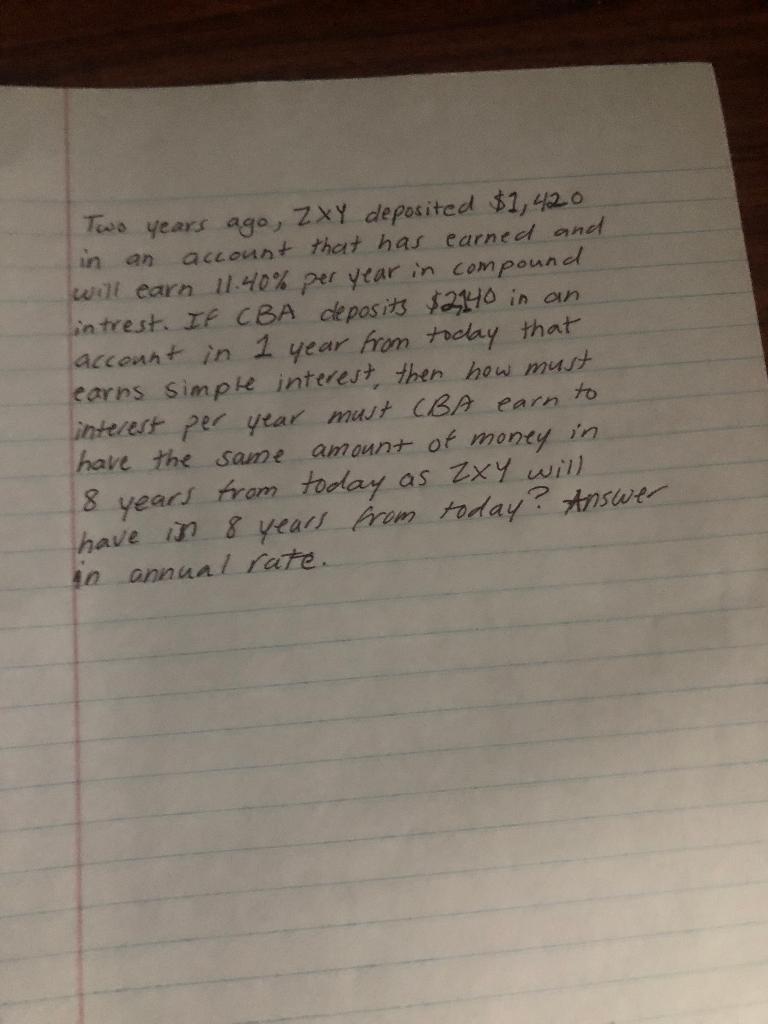 Two years ago, ZXY deposited $1,420
in an account that has earned and
will earn 11.40% per year in compound
intrest. If CBA deposits $2,140 in an
account in 1 year from today that
earns simple interest, then how must
interest per year must CBA earn to
have the same amount of money in
8 years from today as ZXY will
have in 8 years from today? Answer
in annual rate.